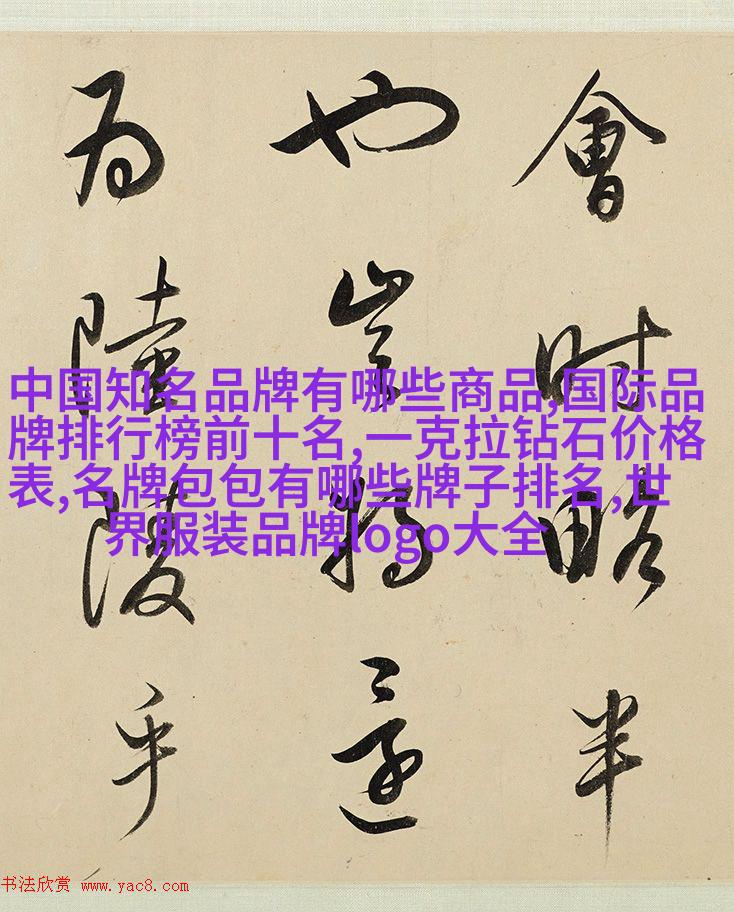 會時略半
也豈將還
為陸陵乎
中国知名品牌有哪些商品,国际品
牌排行榜前十名,一克拉钻石价格
表,名牌包包有哪些牌子排名,世
界服装品牌logo大全
书法欣赏 www.yac8.com